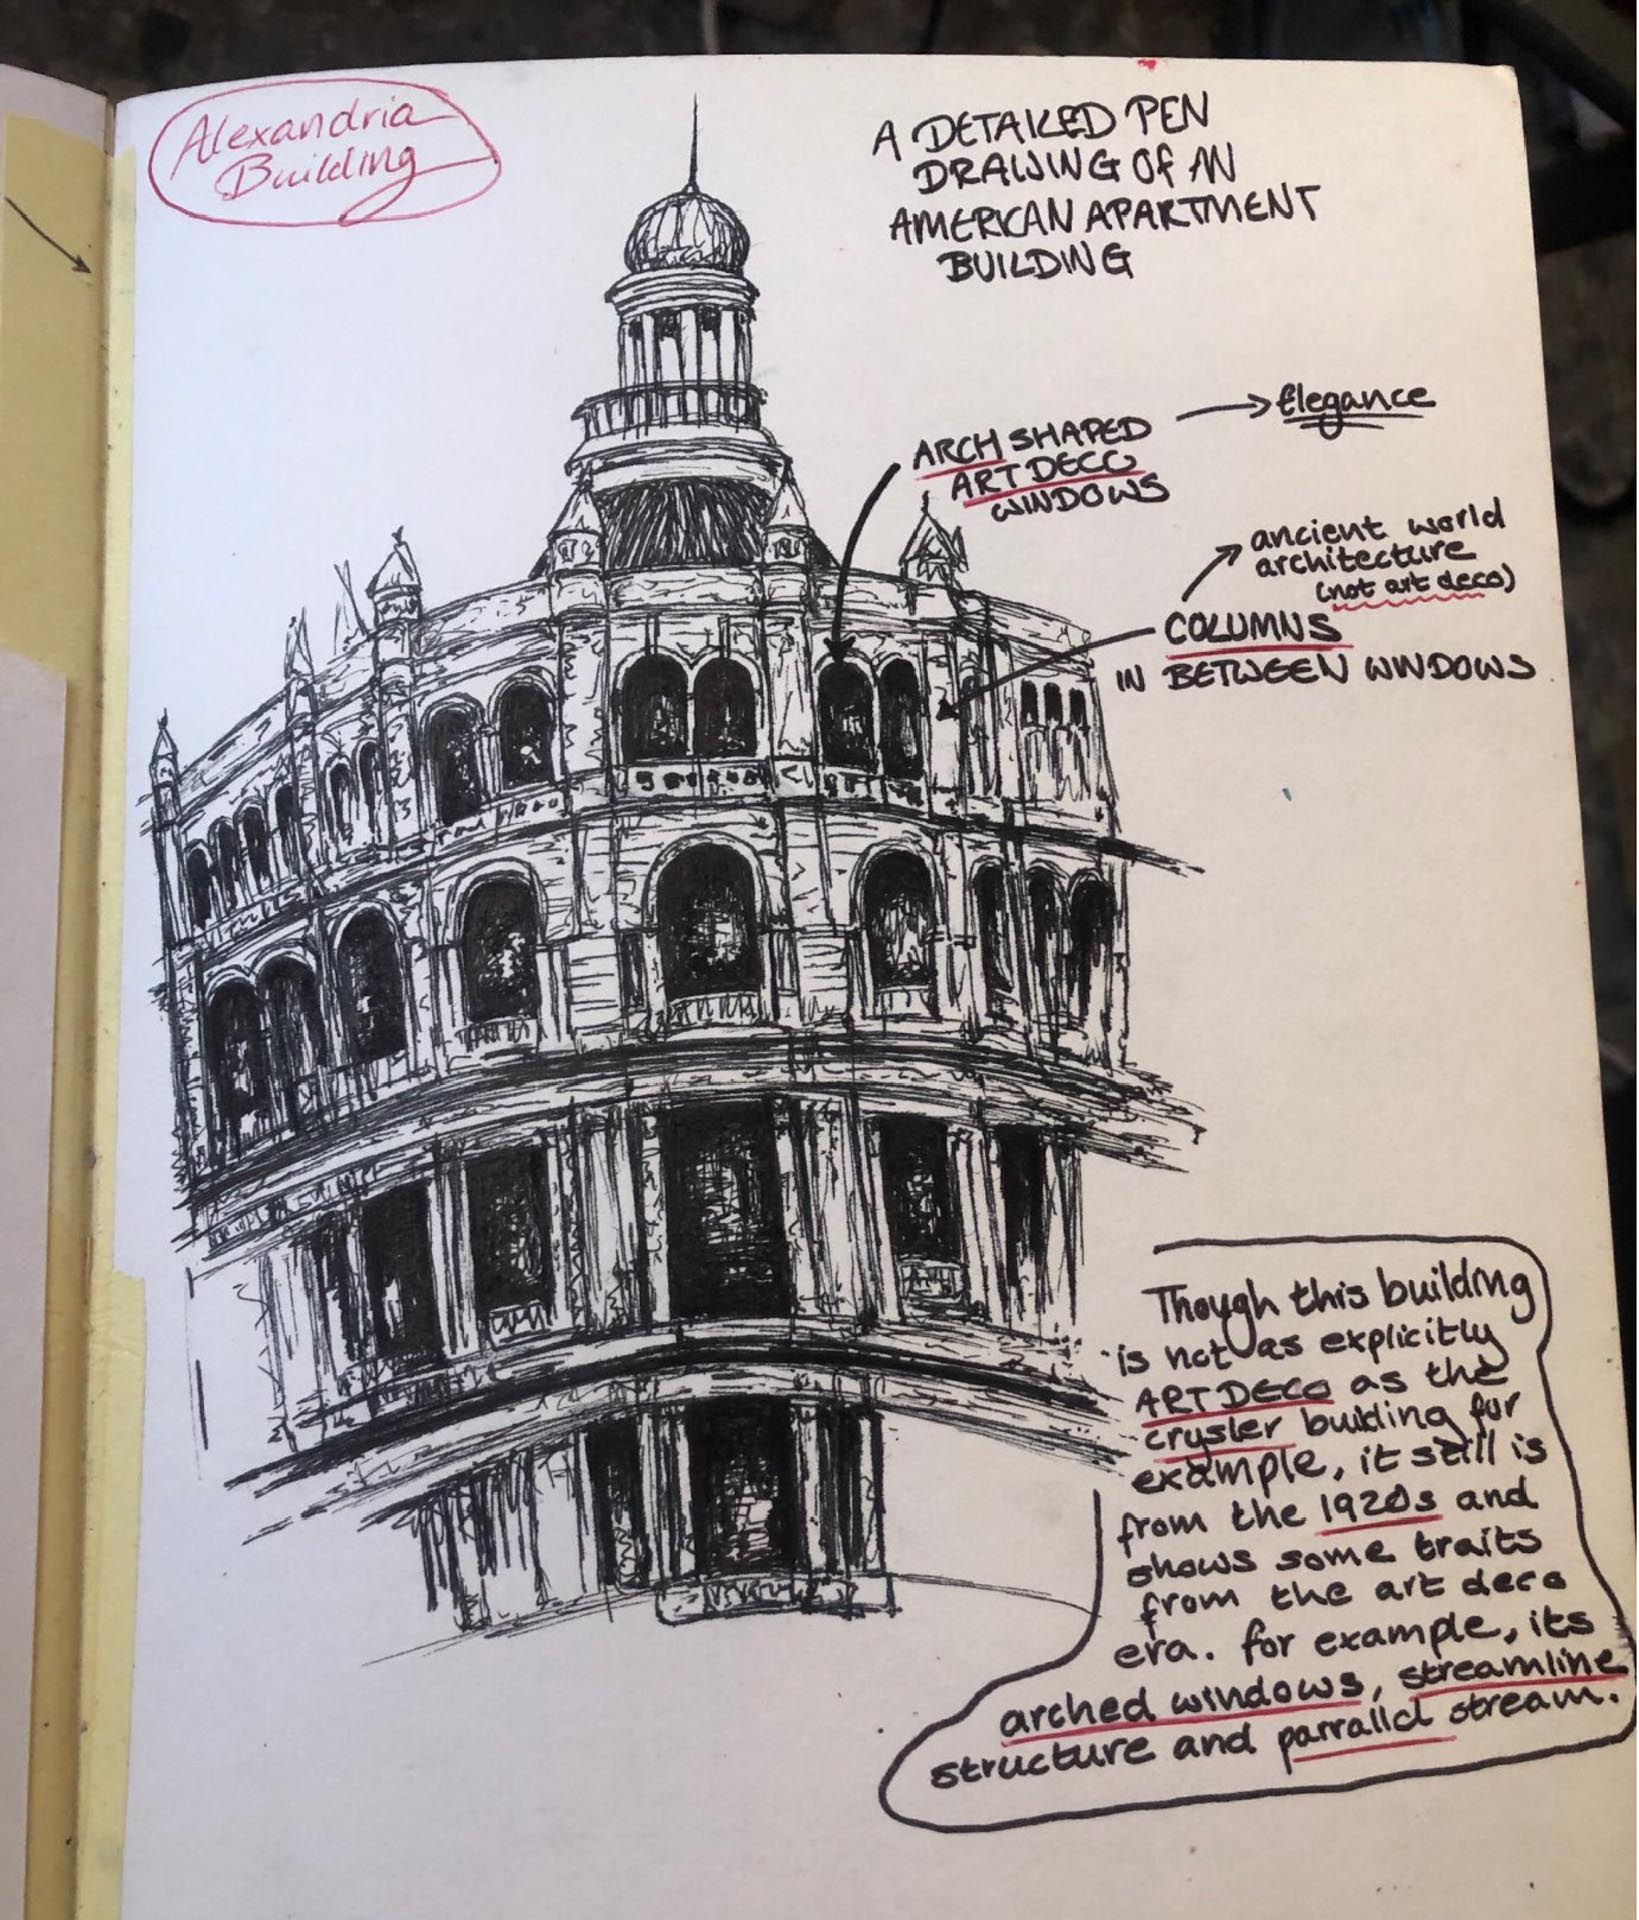 Alexandria
Building
A DETAILED PEN
DRAWING OF AN
AMERICAN APARTMENT
BUILDING
ARCH SHAPED
ART DECO
WINDOWS
Elegance
ancient world
architecture
(not art deco)
COLUMNS
IN BETWEEN WINDOWS
Though this building
is not as explicitly
ART DECO as the
crysler building for
example, it still is
from the 1920s and
shows some traits
from the art deco
era. for example, its
arched windows, streamline
structure and parralld stream.